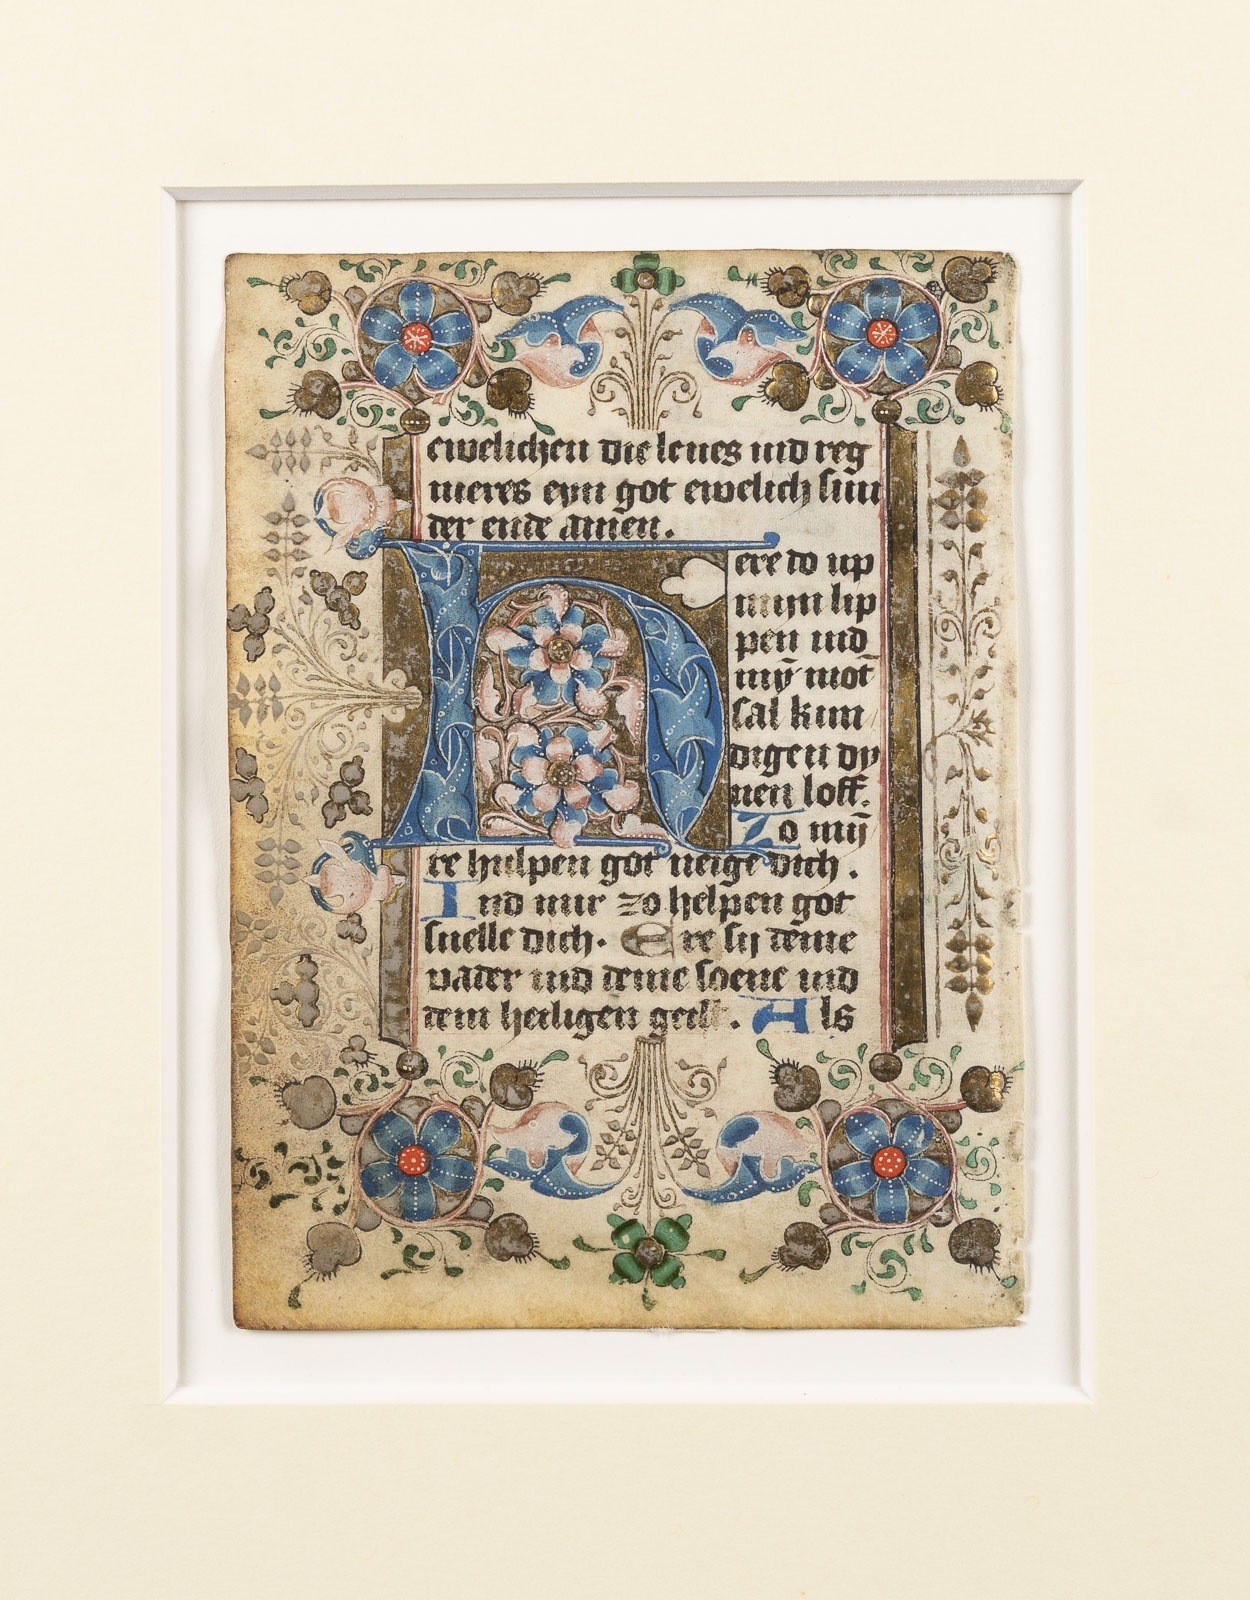 ewelichen die leues ind reg
nieres eyn got ewelich sun
der ende amen.
Here do up
mijn lip
pen ind
mȳ mot
sal kun
digen dy
nen loff.
Zo mȳ
re hulpen got neige dich.
Ind mir zo helpen got
snelle dich. Ere sij deme
vader ind deme soene ind
dem heiligen geist. Als